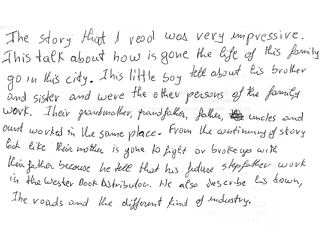 The story that I read was very impressive.
This talk about how is gone the life of this family
go in this city. This little boy tell about his brother
and sister and were the other persons of the family
work. Their grandmother, grandfather, father, uncles and
aunt worked in the same place. From the continuing of story
look like their mother is gone to fight or broke up with
their father because he tell that his future stepfather work
in the Wester Book Distributor. He also describe his town,
The roads and the different find of industry.